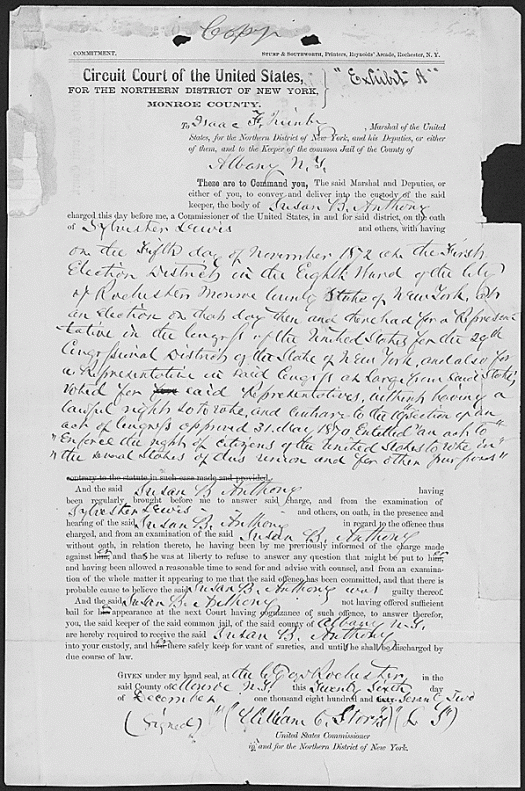 Copy
COMMITMENT. STUMP & SOUTHWORTH, Printers, Reynolds' Arcade, Rochester, N. Y.
Circuit Court of the United States,
FOR THE NORTHERN DISTRICT OF NEW YORK,
MONROE COUNTY.
"Exhibit A"
To Isaac F. Quinby, Marshal of the United
States, for the Northern District of New York, and his Deputies, or either
of them, and to the Keeper of the common Jail of the County of
Albany N.Y.
These are to Command you, The said Marshal and Deputies, or
either of you, to convey and deliver into the custody of the said
keeper, the body of Susan B. Anthony
charged this day before me, a Commissioner of the United States, in and for said district, on the oath
of Sylvester Lewis and others, with having
on the Fifth day of November 1872 at the First
Election District in the Eighth Ward of the City
of Rochester Monroe County State of New York, at
an Election on that day then and there had for a Represen
tative in the Congress of the United States for the 29th
Congressional District of the State of New York, and also for
a Representative in said Congress at large from said State,
voted for said Representatives, without having a
lawful right so to vote, and contrary to the provision of an
act of Congress approved 31. May 1870 Entitled "an act to"
"Enforce the right of Citizens of the United States to vote in"
"the several States of this union and for other purposes"
contrary to the statute in such case made and provided.
And the said Susan B Anthony having
been regularly brought before me to answer said charge, and from the examination of
Sylvester Lewis and others, on oath, in the presence and
hearing of the said Susan B. Anthony in regard to the offence thus
charged, and from an examination of the said Susan B. Anthony
without oath, in relation thereto, he having been by me previously informed of the charge made
against her, and that he was at liberty to refuse to answer any question that might be put to her,
and having been allowed a reasonable time to send for and advise with counsel, and from an examina-
tion of the whole matter it appearing to me that the said offence has been committed, and that there is
probable cause to believe the said Susan B. Anthony was guilty thereof.
And the said Susan B. Anthony not having offered sufficient
bail for appearance at the next Court having cognizance of such offence, to answer therefor,
you, the said keeper of the said common jail, of the said county of Albany N.Y.
are hereby required to receive the said Susan B. Anthony
into your custody, and there safely keep for want of sureties, and until he shall be discharged by
due course of law.
GIVEN under my hand seal, at the City of Rochester in the
said County of Monroe N.Y. this Twenty Sixth day
of December one thousand eight hundred and Seventy Two
(Signed) "William C. Storrs" (L S)
United States Commissioner
in and for the Northern District of New York.